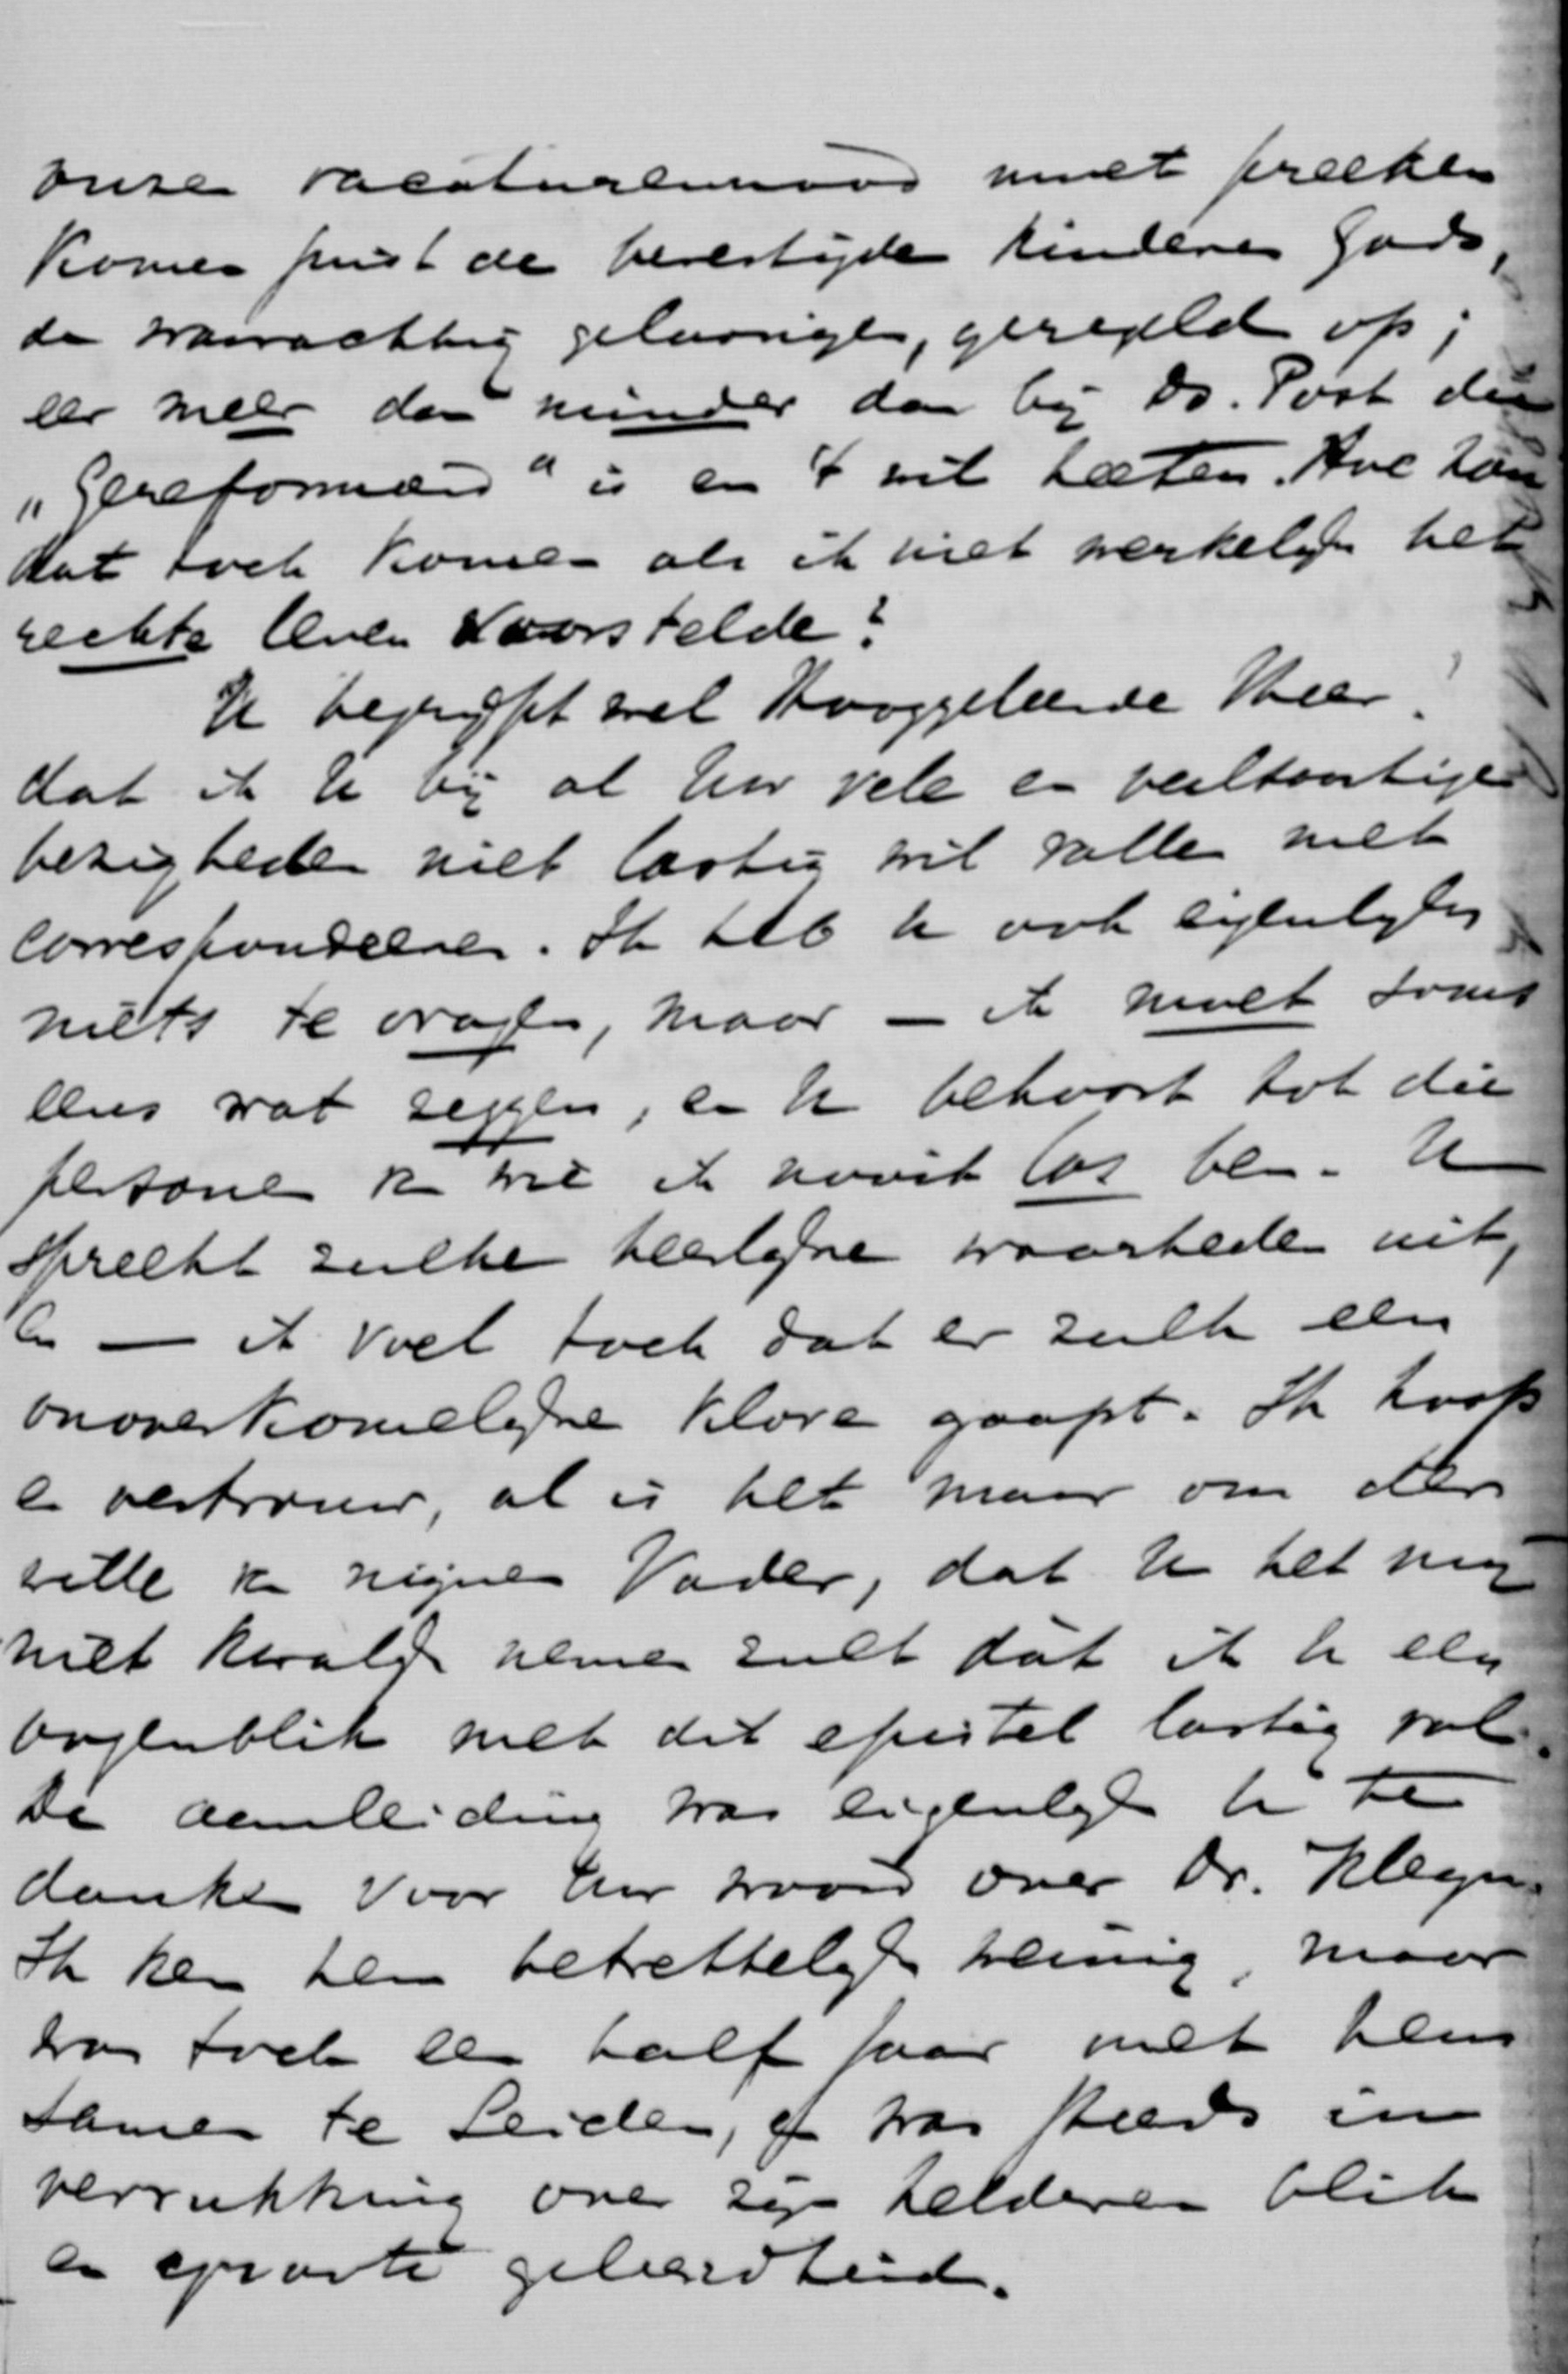 onze vacaturennood moet preeken
komen juist de bevestigde kinderen Gods,
de waarachtig geloovigen, geregeld op;
eer meer dan minder dan bij Ds. Post die
„Gereformeerd" is en 't wil heeten. Hoe kan
dat toch komen als ik niet werkelijk het
rechte leven voorstelde?
U begrijpt wel Hooggeleerde Heer!
dat ik U bij al Uw vele en veelsoortige
bezigheden niet lastig wil vallen met
correspondeeren. Ik heb U ook eigenlijk
niets te vragen, maar — ik moet soms
eens wat zeggen, en U behoort tot die
personen van wie ik nooit los ben. U
spreekt zulke heerlijke waarheden uit,
en — ik voel toch dat er zulk een
onoverkomelijke klove gaapt. Ik hoop
en vertrouw, al is het maar om den
wille van mijnen Vader, dat U het mij
niet kwalijk nemen zult dat ik U een
oogenblik met dit epistel lastig val.
De aanleiding was eigenlijk U te
danken voor Uw woord over Dr. Kleyn.
Ik ken hem betrekkelijk weinig, maar
was toch een half jaar met hem
samen te Leiden, en was steeds in
verrukking over zijn helderen blik
en groote geleerdheid.